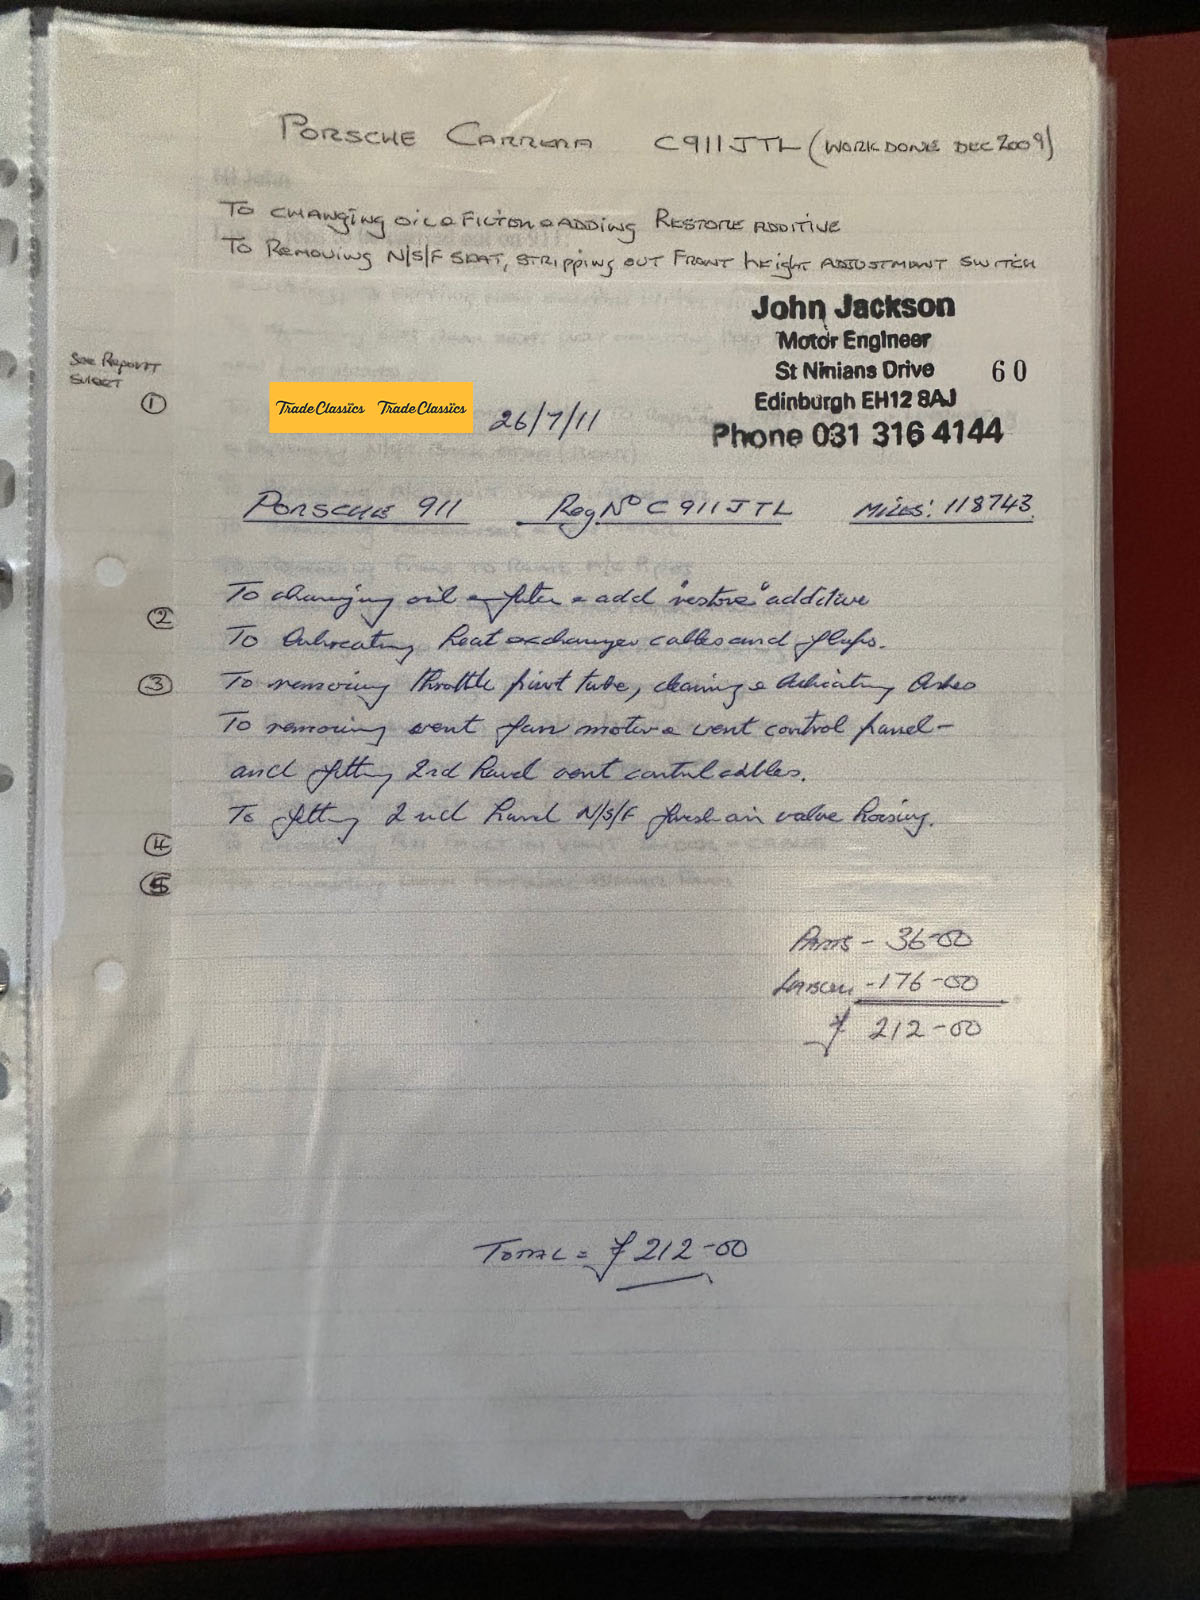 PORSCHE CARRERA C911JTL (WORK DONE DEC 2009)
TO CHANGING OIL & FILTER & ADDING RESTORE ADDITIVE
TO REMOVING N/S/F SEAT, STRIPPING OUT FRONT height ADJUSTMENT SWITCH
John Jackson
Motor Engineer
St Ninians Drive
Edinburgh EH12 8AJ
Phone 031 316 4144
60
See Report
SHEET
①
TradeClassics TradeClassics
26/7/11
PORSCHE 911 Reg Nº C911JTL MILES: 118743
To changing oil & filter & add "restore" additive
②
To lubricating heat exchanger cables and flaps.
③
To removing throttle pivot tube, cleaning & lubricating
To removing vent fan motor & vent control panel -
and fitting 2nd hand vent control cables.
To fitting 2nd hand N/S/F fresh air valve housing.
④
⑤
PARTS - 36-00
LABOUR - 176-00
£ 212-00
TOTAL = £212-00